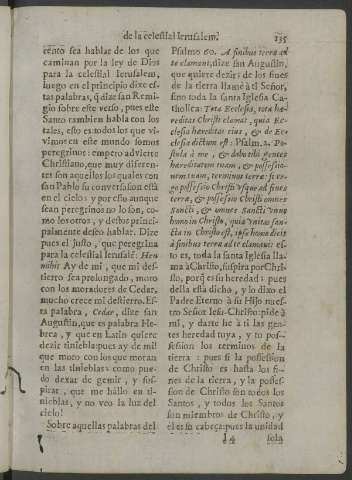 de la celestial Ierusalem.
135
cento sea hablar de los que
caminan por la ley de Dios
para la celestial Ierusalem,
luego en el principio dize es-
tas palabras, q̃ dize san Remi-
gio sobre este verso, pues este
Santo tambien habla con los
tales, esto es todos los que vi-
vimos en este mundo somos
peregrinos: empero advierte
Christiano, que muy diferen-
tes son aquellos los quales con
san Pablo su conversacion está
en el cielo: y por esto aunque
sean peregrinos no lo son, co-
mo los otros, y destos princi-
palmente deseo hablar. Dize
pues el justo, que peregrina
para la celestial Ierusalẽ: Heu
mihi! Ay de mi, que mi des-
tierro sea prolongado, moro
con los moradores de Cedar,
mucho crece mi destierro. Es-
ta palabra, Cedar, dize san
Augustin, que es palabra He-
brea, y que en Latin quiere
dezir tiniebla: pues ay de mi
que moro con los que moran
en las tinieblas: como pue-
do dexar de gemir, y sos-
pirar, que me hallo en ti-
nieblas, y no veo la luz del
cielo!
Sobre aquellas palabras del
Psalmo 60. A finibus terra ad
te clamavi, dize san Augustin,
que quiere dezir: de los fines
de la tierra llamè à ti Señor,
sino toda la santa Iglesia Ca-
tholica: Tota Ecclesia, tota he-
reditas Christi clamat, quia Ec-
clesia hereditas eius, & de Ec-
clesia dictum est: Psalm. 2. Po-
stula à me, & dabo tibi gentes
hereditatem tuam, & possessio-
nem tuam, terminos terra: si er-
go possessio Christi usque ad fines
terra, & possessio Christi omnes
Sancti, & omnes Sancti unus
homo in Christo, quia unitas san-
cta in Christo est, ipse homo dicit
à finibus terra ad te clamavi: es-
to es, toda la santa Iglesia lla-
ma à Christo, suspira por Chri-
sto, porq̃ es su heredad: pues
della está dicho, y lo dixo el
Padre Eterno à su Hijo nues-
tro Señor Iesu-Christo: pide à
mi, y darte he à ti las gen-
tes heredad tuya, y tu pos-
session los terminos de la
tierra: pues si la possession
de Christo es hasta los fi-
nes de la tierra, y la posses-
sion de Christo son todos los
Santos, y todos los Santos
son miembros de Christo, y
èl es su cabeça: pues la unidad
I 4
sola